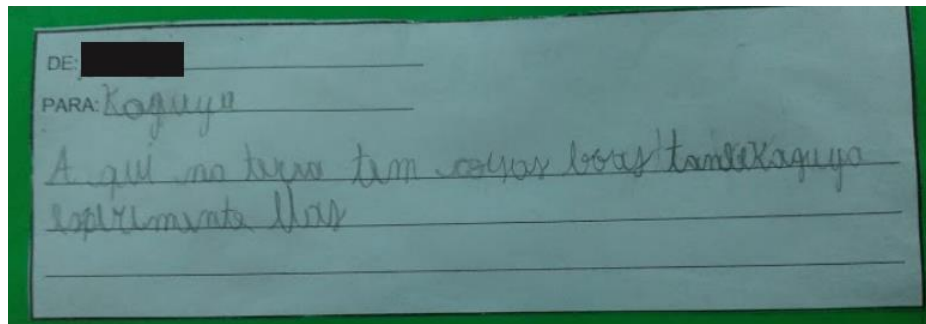 DE:
PARA: Kaguya
A qui na terra tem coisas boas Kaguya
esperimente